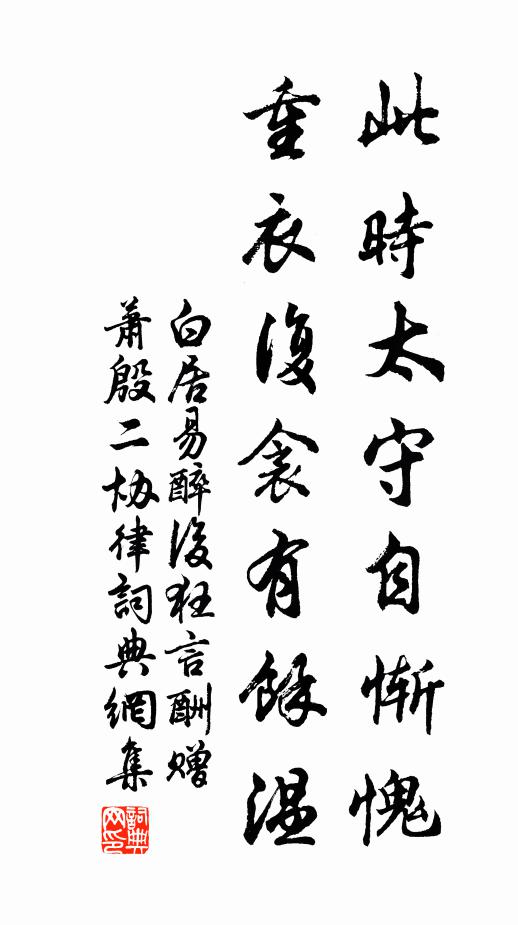 此時太守自慚愧
重衣復衾有餘溫
白居易醉後狂言酬贈
蕭殷二協律詞典網集
詞典
网印